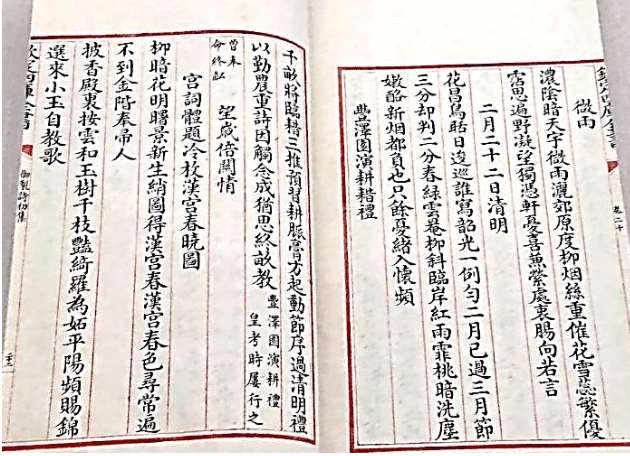 卷二十
微雨
濃陰暗天宇微雨灑郊原度柳烟絲重催花雪蕊繁優
霑思遍野凝望獨憑軒憂喜無縈處衷腸向若言
二月二十二日清明
花昌鳥晧日逡巡誰寫韶光一例勻二月已過三月節
三分却判二分春緑雲菴柳斜臨岸紅雨霏桃暗洗塵
嫰酪新烟都負也只餘憂緒入懷頻
豐澤園演耕耤禮
千畝將臨耤三推預習耕脈膏方起動節序過清明禮
以勤農重詩因觸念成猶思終畝教豐澤園演耕禮皇考時屢行之
曾未命終畝望歲倍關情
宮詞體題冷枚漢宮春曉圖
柳暗花明曙景新生綃圖得漢宮春漢宮春色尋常遍
不到金階奉帚人
披香殿裏按雲和玉樹千枝豔綺羅為妬平陽頻賜錦
選來小玉自教歌
欽定四庫全書
御製詩初集